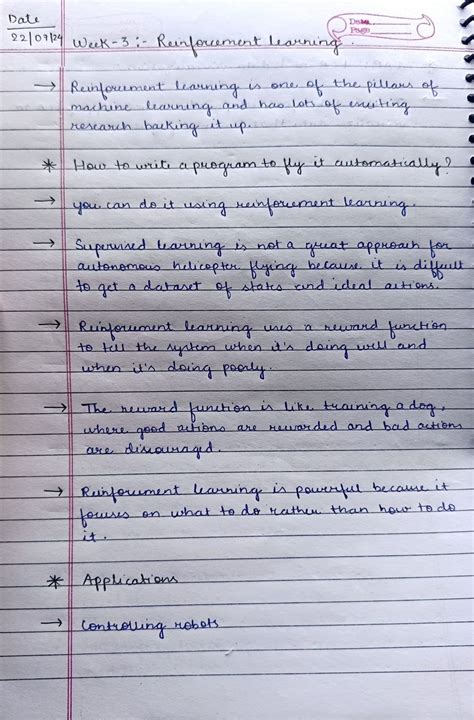 Date
22/07/24
Date
Page
Week-3 :- Reinforcement learning.
→ Reinforcement learning is one of the pillars of
machine learning and has lots of exciting
research backing it up.
* How to write a program to fly it automatically?
→ you can do it using reinforcement learning.
→ Supervised learning is not a great approach for
autonomous helicopter flying because it is difficult
to get a dataset of states and ideal actions.
→ Reinforcement learning uses a reward function
to tell the system when it's doing well and
when it's doing poorly.
→ The reward function is like training a dog,
where good actions are rewarded and bad actions
are discouraged.
→ Reinforcement learning is powerful because it
focuses on what to do rather than how to do
it.
* Applications
→ Controlling robots